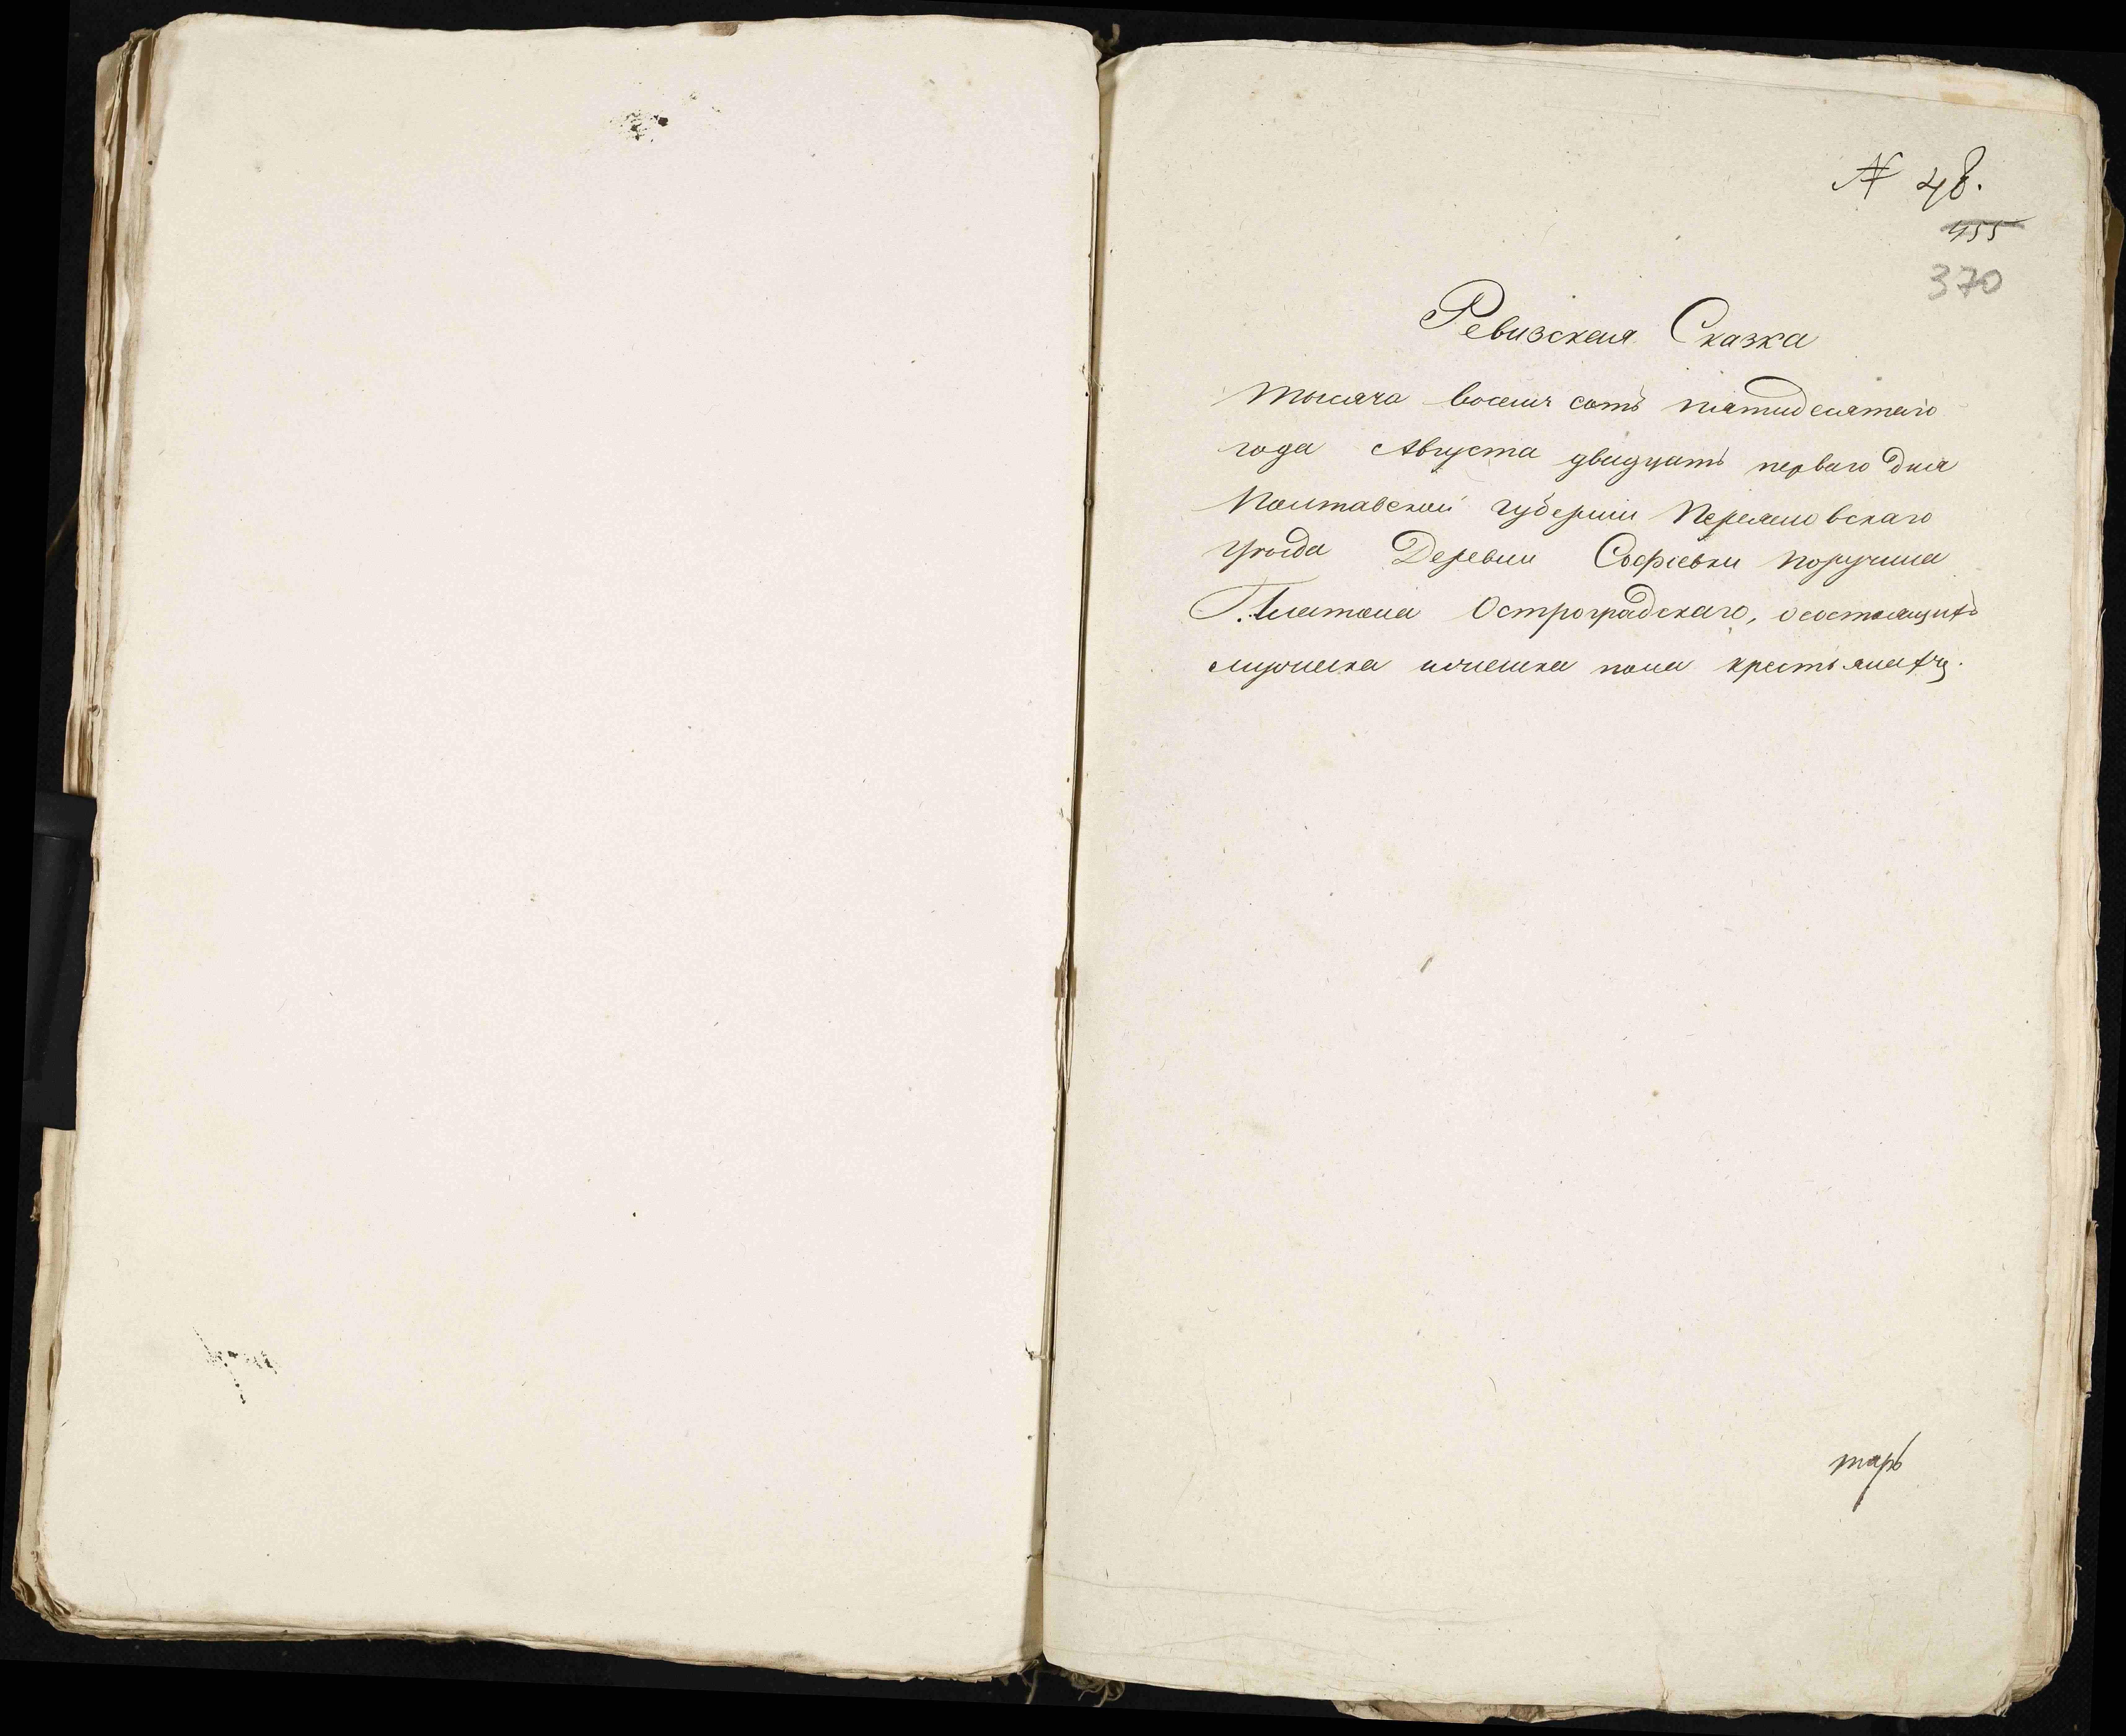 № 48.
455
370
Ревизская Сказка
тысяча восемь сотъ пятидесятаго
года Августа двадцать перваго дня
Полтавской губерніи Переяславскаго
уезда Деревни Софіевки поручика
Платона Остроградскаго, о состоящихъ
мужеска и женска пола крестьянахъ.
тарь